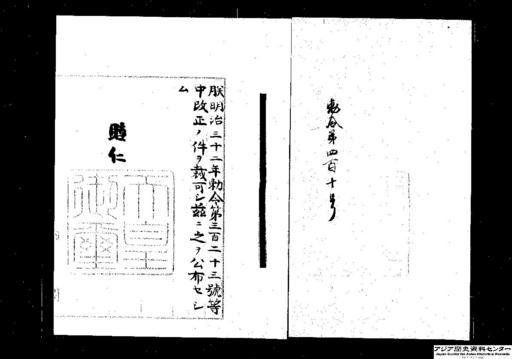 勅令第四百十号
朕明治三十二年勅令第三百二十三號等
中改正ノ件ヲ裁可シ茲ニ之ヲ公布セシ
ム
睦仁
天皇
御璽
アジア歴史資料センター
Japan Center for Asian Historical Records